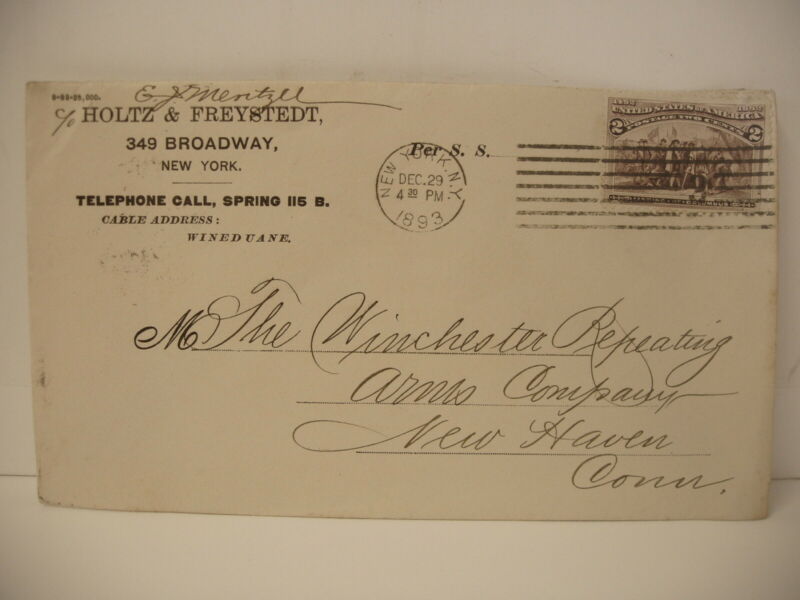 8-93-25,000.
E. J. Mentzell
c/o HOLTZ & FREYSTEDT,
349 BROADWAY,
NEW YORK.
TELEPHONE CALL, SPRING 115 B.
CABLE ADDRESS:
WINEDUANE.
Per S. S.
NEW YORK, N.Y.
DEC. 29
4 30 PM
1893
1492 1892
UNITED STATES OF AMERICA
2 POSTAGE TWO CENTS 2
LANDING OF COLUMBUS
M The Winchester Repeating
Arms Company
New Haven
Conn.